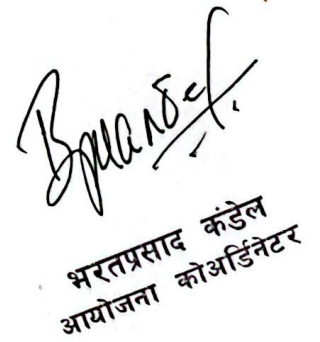 भरतप्रसाद कंडेल
आयोजना कोअर्डिनेटर